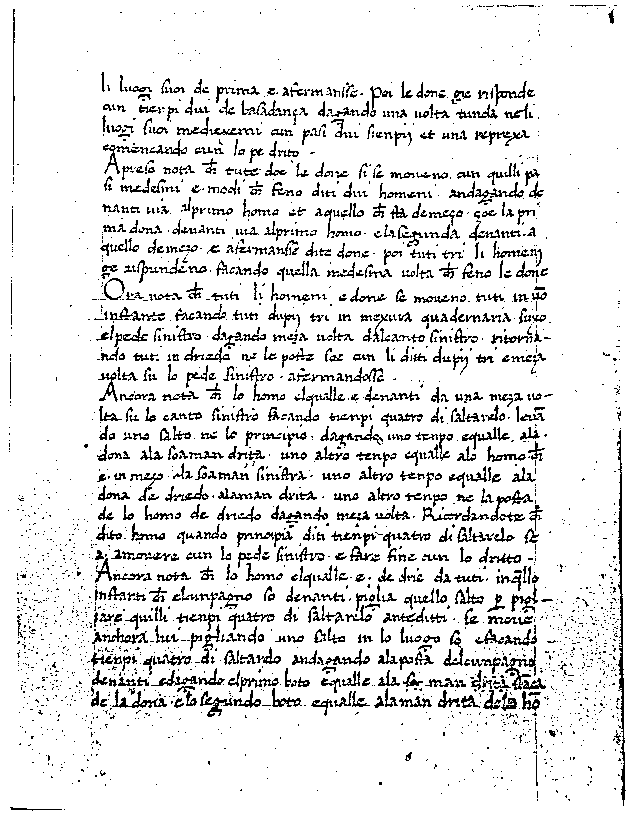 li luogi suoi de prima e afermansse · Poi le done gie risponde
cun tienpi dui de basadança dagando una volta tunda neli
luogi suoi medieximi cun pasi dui sienpij et una reprexa
comencando cun lo pe drito ·
Apreso nota ch̄ tute doe le done si se moveno cun quilli pa
si medesimi e modi ch̄ feno diti dui homeni andagando de
nanti via alprimo homo et aquello ch̄ sta demeço çoe la pri
ma dona devanti via alprimo homo e la segunda denanti a
quello demeço e afermansse dite done poi tuti tri li homenj
ge rispundeno facando quella medesma volta ch̄ feno le done
Ora nota ch̄ tuti li homeni e done se moveno tuti in uno
instante facando tuti dupij tri in mexura quadernaria suxo
el pede sinistro dagando meja volta dalcanto sinistro ritorna-
ndo tuti in driedo ne le poste soe cun li diti dupij tri e meja
volta su lo pede sinistro afermandosse ·
Ancora nota ch̄ lo homo elqualle e denanti da una meza vo-
lta su lo canto sinistro facando tienpi quatro di saltarelo levā
do uno salto ne lo principio dagando uno tenpo equalle ala
dona ala soa man drita uno altro tenpo equalle alo homo ch̄
e in mezo ala soa man sinistra uno altro tenpo equalle ala
dona de driedo ala man drita uno altro tenpo ne la posta
de lo homo de driedo dagando meza volta Ricordandote ch̄
dito homo quando principia diti tienpi quatro di saltarelo se
a amovere cun lo pede sinistro e fare fine cun lo dritto –
Ancora nota ch̄ lo homo elqualle e de drie da tuti in q̄llo
instanti ch̄ el cunpagno so denanti piglia quello salto p̱ pigl-
iare quilli tienpi quatro di saltarelo anteditti se move
anchora lui pigliando uno salto in lo luogo so e facando
tienpi quatro di saltarelo andagando ala posta del cunpagno
denanti e dagando el primo boto equalle ala soa man drita
de la dona e lo segundo boto equalle ala man drita de lo ho